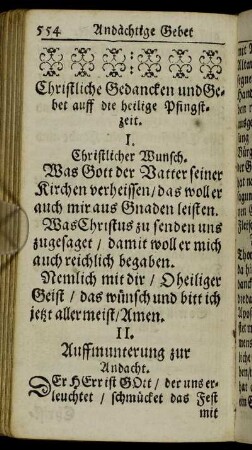 554 Andächtige Gebet
Christliche Gedancken und Ge-
bet auff die heilige Pfingst-
zeit.
I.
Christlicher Wunsch.
Was Gott der Vatter seiner
Kirchen verheissen / das woll er
auch mir aus Gnaden leisten.
Was Christus zu senden uns
zugesaget / damit woll er mich
auch reichlich begaben.
Nemlich mit dir / O heiliger
Geist / das wünsch und bitt ich
jetzt allermeist / Amen.
II.
Auffmunterung zur
Andacht.
DEr HErr ist GOtt / der uns er-
leuchtet / schmücket das Fest
mit